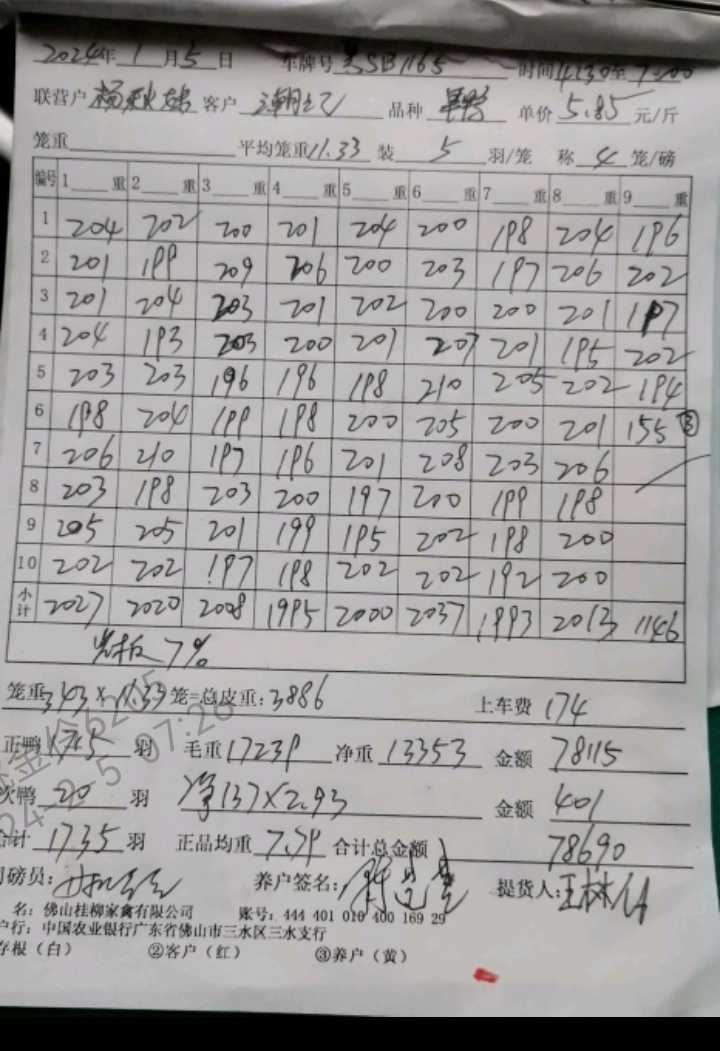 2024年 1 月 5 日 车牌号 SB1165 时间 4:30 至 7:00
联营户 杨 客户 潮 品种 单价 5.85 元/斤
笼重 平均笼重 11.33 装 5 羽/笼 称 4 笼/磅
编号 1 重 2 重 3 重 4 重 5 重 6 重 7 重 8 重 9 重
1 204 202 200 201 204 200 198 204 196
2 201 199 209 206 200 203 197 206 202
3 201 204 203 201 202 200 200 201 197
4 204 193 203 200 201 207 201 195 202
5 203 203 196 196 198 210 205 202 194
6 198 204 199 198 200 205 200 201 155 ③
7 206 210 197 196 201 208 203 206
8 203 198 203 200 197 200 199 198
9 205 205 201 199 195 202 198 200
10 202 202 197 198 202 202 192 200
小计 2027 2020 2008 1995 2000 2037 1993 2013 1146
光板 7%
笼重 343 × 11.33 笼=总皮重: 3886 上车费 174
正鸭 1715 羽 毛重 17239 净重 13353 金额 78115
次鸭 20 羽 净137×2.93 金额 401
合计 1735 羽 正品均重 7.79 合计总金额 78690
司磅员: 养户签名: 提货人: 王
名: 佛山桂柳家禽有限公司 账号: 444 401 010 400 169 29
户行: 中国农业银行广东省佛山市三水区三水支行
存根（白） ②客户（红） ③养户（黄）